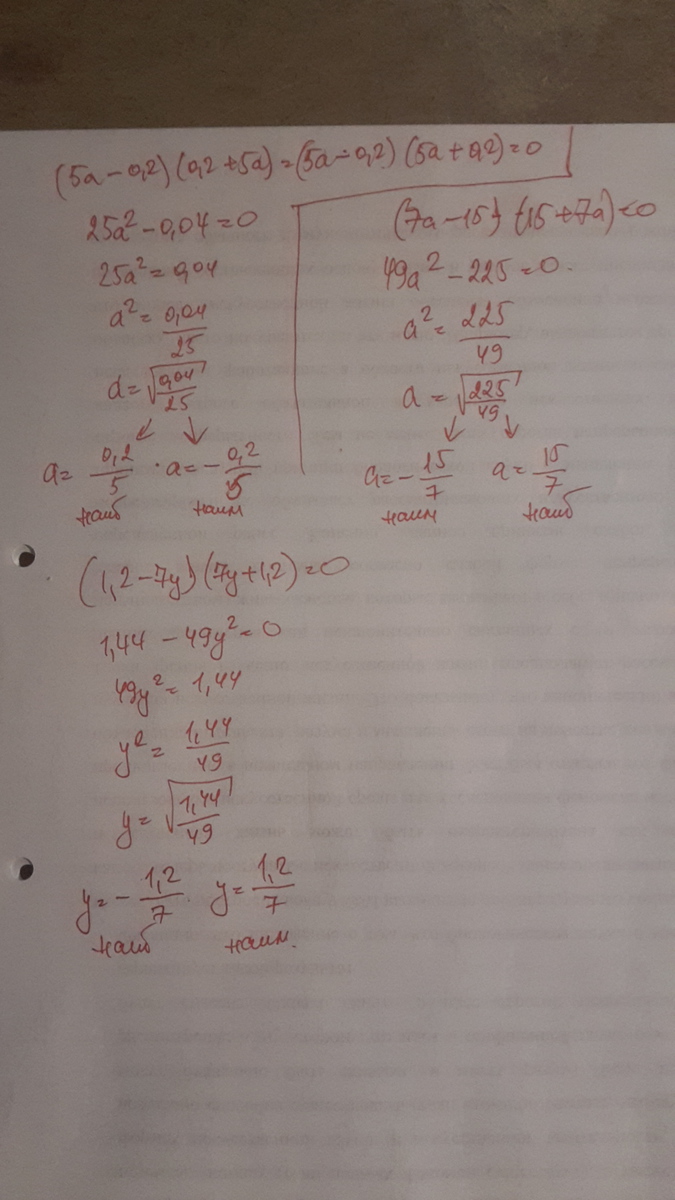 (5a − 0,2) (0,2 + 5a) = (5a − 0,2) (5a + 0,2) = 0
25a² − 0,04 = 0
25a² = 0,04
a² = 0,04/25
a = √(0,04/25)
a = 0,2/5 · a = − 0,2/5
наиб наим
(7a − 15) · (15 + 7a) = 0
49a² − 225 = 0.
a² = 225/49
a = √(225/49)
a = − 15/7 a = 15/7
наим наиб
(1,2 − 7y) (7y + 1,2) = 0
1,44 − 49y² = 0
49y² = 1,44
y² = 1,44/49
y = √(1,44/49)
y = − 1,2/7 y = 1,2/7
наиб наим.